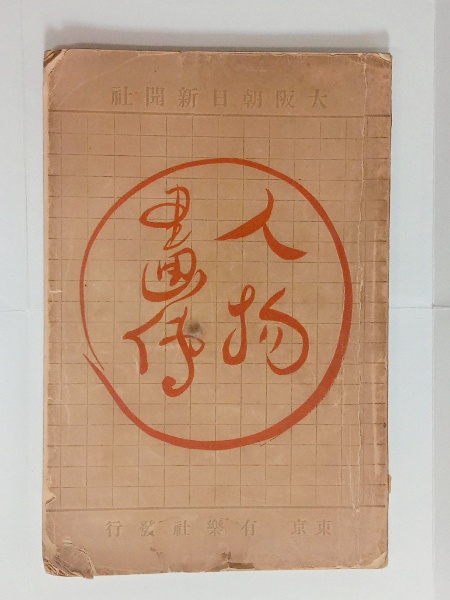 大阪朝日新聞社
人物
畫傳
東京 有樂社發行